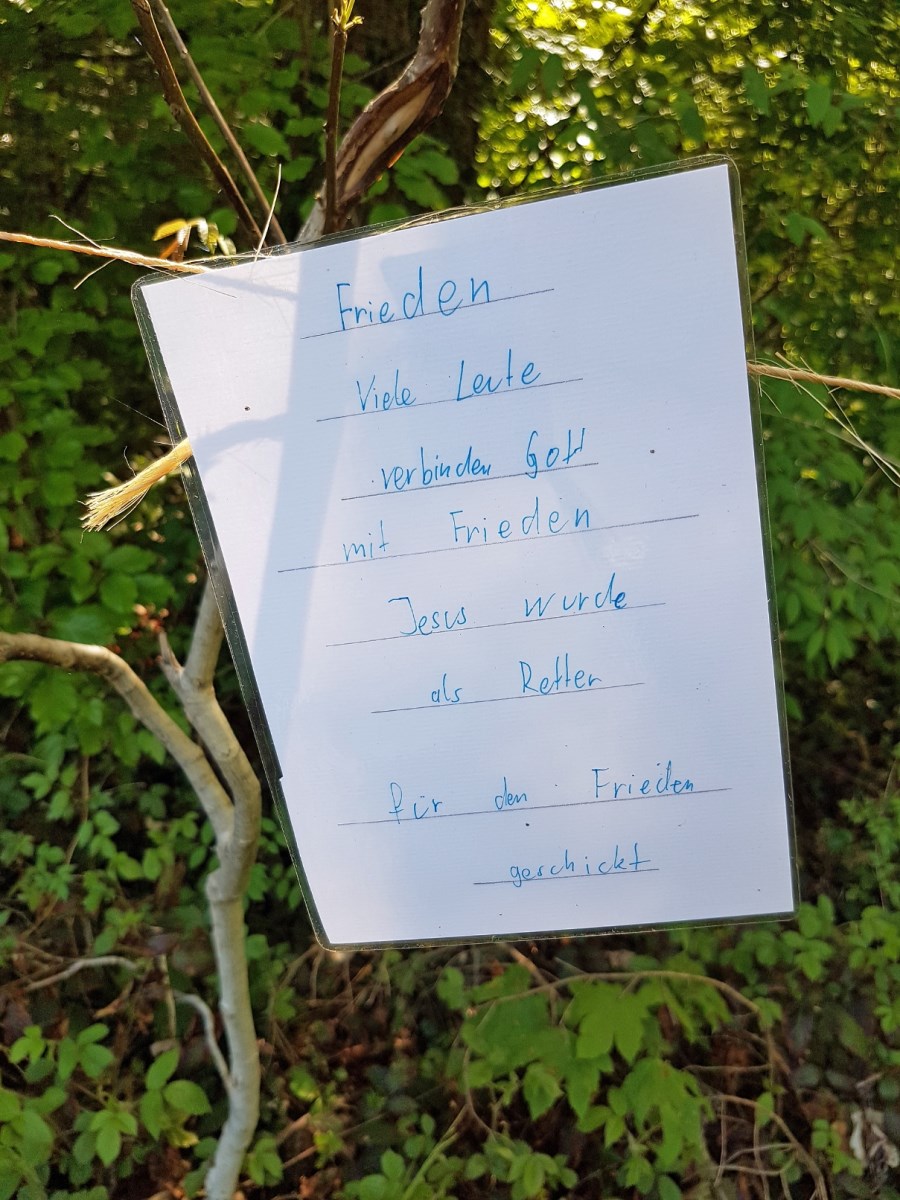 Frieden
Viele Leute
verbinden Gott
mit Frieden
Jesus wurde
als Retter
für den Frieden
geschickt